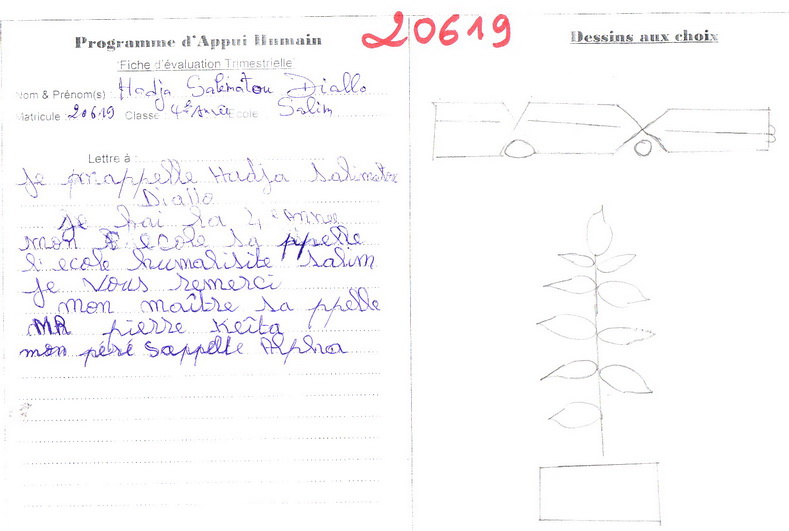 20619
Programme d'Appui Humain
Fiche d'évaluation Trimestrielle
Nom & Prénom(s) : Hadja Salématou Diallo
Matricule : 20619 Classe 4e Année Ecole Salim
Lettre à :
je m'appelle Hadja Salimatou
Diallo
je hai sa 4e Année
mon école sa ppelle
l'ecole humalisite salim
je vous remerci
mon maître sa ppelle
MR pierre Keîta
mon péré sappelle Alpha
Dessins aux choix